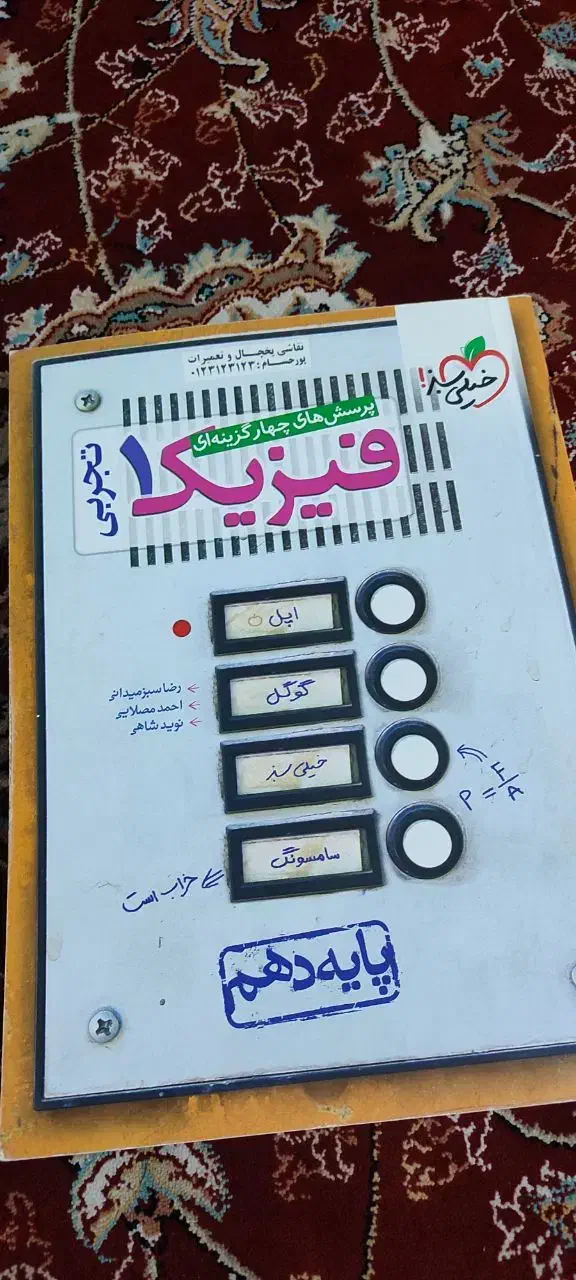 نقاشی یخچال و تعمیرات
پورحسام: ۰۱۲۳۱۲۳۱۲۳
خیلی سبز!
پرسش‌های چهارگزینه‌ای
فیزیک ۱
تجربی
اپل
گوگل
رضا سبزمیدانی
احمد مصلایی
نوید شاهی
خیلی سبز
P = F/A
سامسونگ
خراب است
پایه دهم